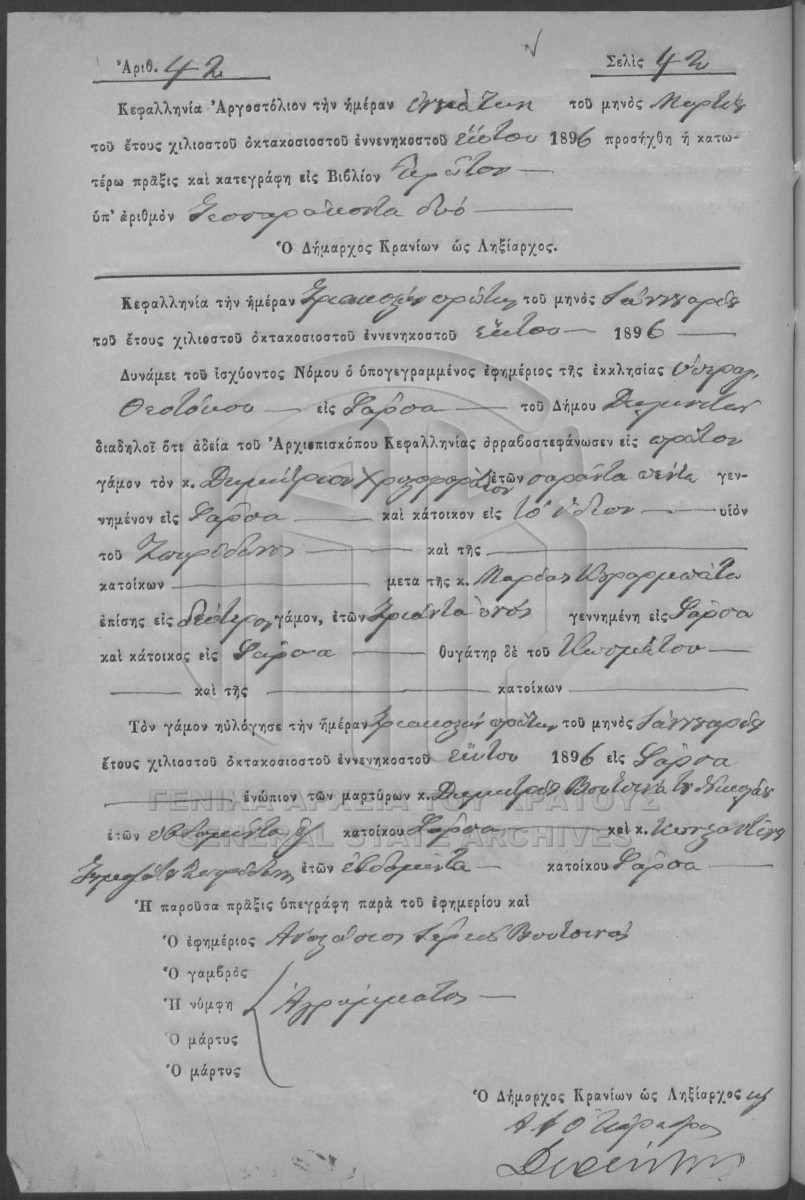 Ἀριθ. 42 Σελὶς 42
Κεφαλληνία Ἀργοστόλιον τὴν ἡμέραν τοῦ μηνὸς Μαρτίου
τοῦ ἔτους χιλιοστοῦ ὀκτακοσιοστοῦ ἐννενηκοστοῦ ἕκτου 1896 προσήχθη ἡ κατω-
τέρω πρᾶξις καὶ κατεγράφη εἰς Βιβλίον πρῶτον
ὑπ' ἀριθμὸν Τεσσαράκοντα δυό
Ὁ Δήμαρχος Κρανίων ὡς Ληξίαρχος.
Κεφαλληνία τὴν ἡμέραν Τριακοστὴν πρώτην τοῦ μηνὸς Ἰαννουαρίου
τοῦ ἔτους χιλιοστοῦ ὀκτακοσιοστοῦ ἐννενηκοστοῦ ἕκτου 1896
Δυνάμει τοῦ ἰσχύοντος Νόμου ὁ ὑπογεγραμμένος ἐφημέριος τῆς ἐκκλησίας Ὑπεραγ.
Θεοτόκου εἰς Φάρσα τοῦ Δήμου
διαδηλοῖ ὅτι ἀδεία τοῦ Ἀρχιεπισκόπου Κεφαλληνίας ἀρραβοστεφάνωσεν εἰς πρῶτον
γάμον τὸν κ. Δημήτριον ἐτῶν σαράντα πέντε γεν-
νημένον εἰς Φάρσα καὶ κάτοικον εἰς τὸ ἴδιον υἱὸν
τοῦ Σπυρίδωνος καὶ τῆς
κατοίκων μετα τῆς κ. Μαρίας
ἐπίσης εἰς δεύτερον γάμον, ἐτῶν Τριάντα ἑνός γεννημένη εἰς Φάρσα
καὶ κάτοικος εἰς Φάρσα θυγάτηρ δὲ τοῦ
καὶ τῆς κατοίκων
Τὸν γάμον ηὐλόγησε τὴν ἡμέραν Τριακοστὴν πρώτην τοῦ μηνὸς Ἰαννουαρίου
ἔτους χιλιοστοῦ ὀκτακοσιοστοῦ ἐννενηκοστοῦ ἕκτου 1896 εἰς Φάρσα
ἐνώπιον τῶν μαρτύρων κ. Δημητρίου Βουτσινᾶ τοῦ Νικολάου
ἐτῶν κατοίκου Φάρσα καὶ κ. Κωνσταντίνου
ἐτῶν ἑβδομήντα κατοίκου Φάρσα
Ἡ παροῦσα πρᾶξις ὑπεγράφη παρὰ τοῦ ἐφημερίου καὶ
Ὁ ἐφημέριος Ἀναστάσιος Ἱερεὺς Βουτσινᾶς
Ὁ γαμβρὸς
Ἡ νύμφη Ἀγράμματοι
Ὁ μάρτυς
Ὁ μάρτυς
Ὁ Δήμαρχος Κρανίων ὡς Ληξίαρχος
ΓΕΝΙΚΑ ΑΡΧΕΙΑ ΤΟΥ ΚΡΑΤΟΥΣ
GENERAL STATE ARCHIVES